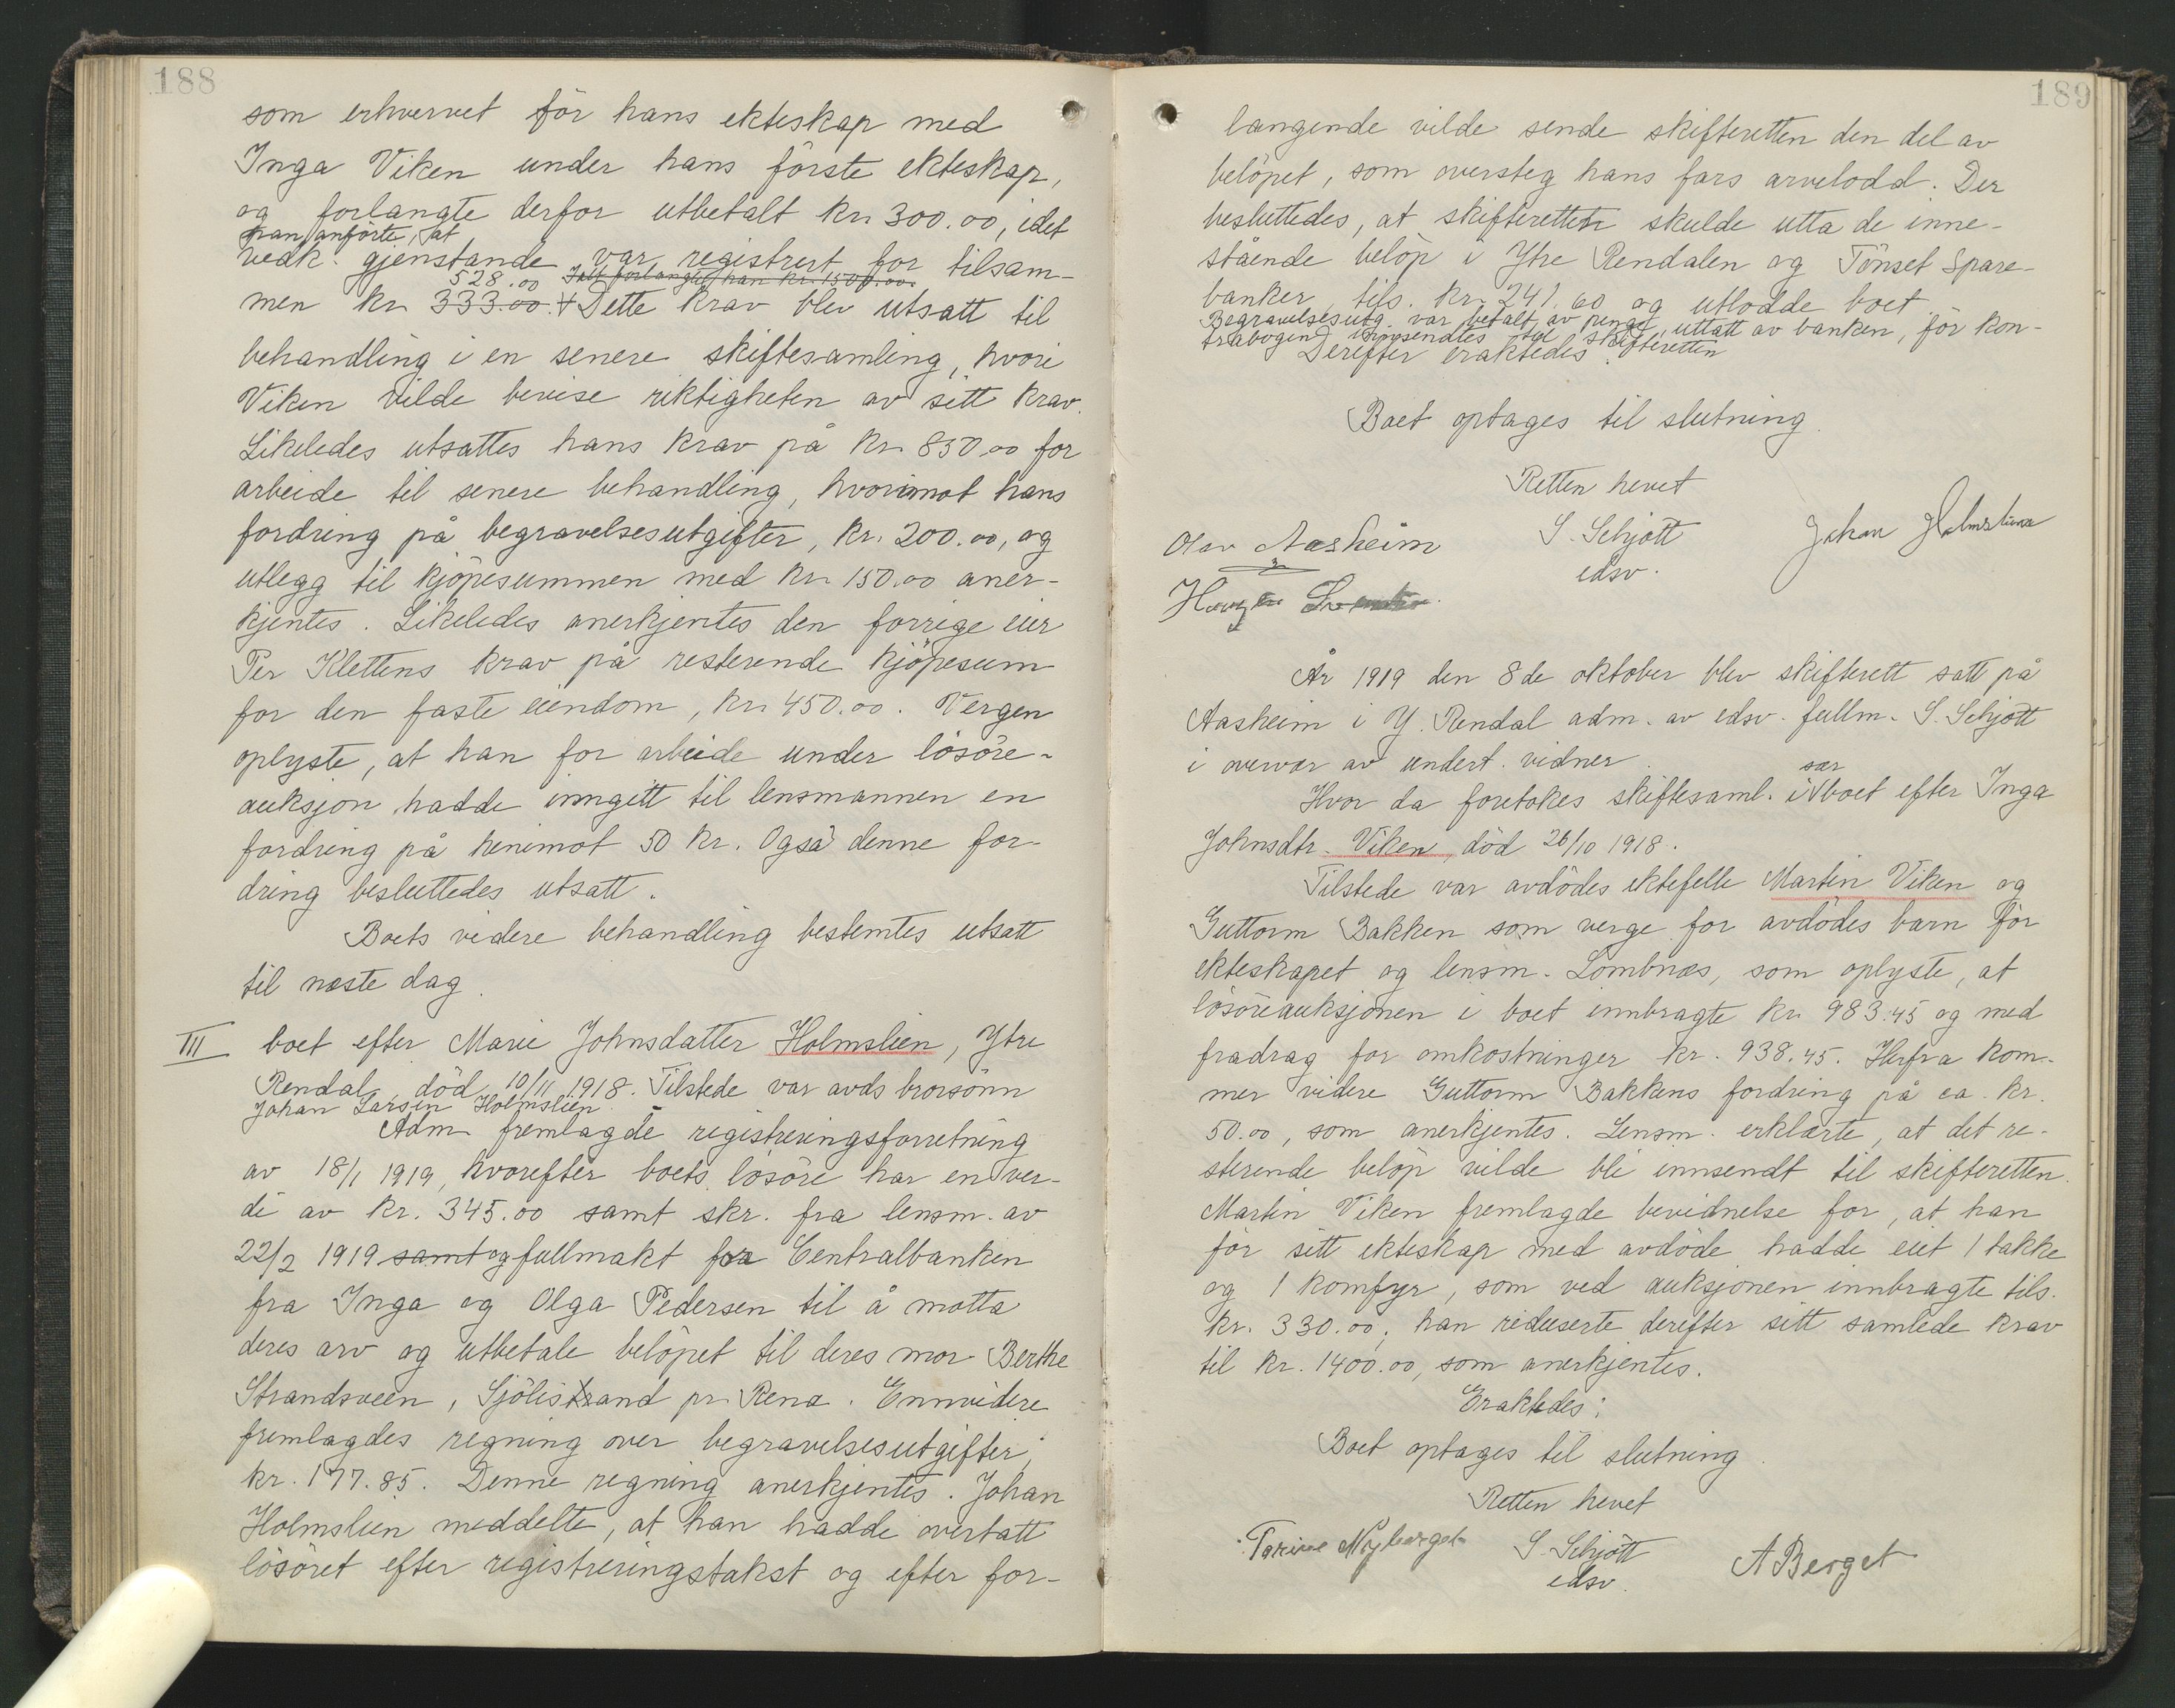 188
som erhvervet för hans ekteskap med
Inga Viken under hans förste ekteskap,
og forlangte derfor utbetalt kr. 300.00, idet
han anförte, at
vedk. gjenstande var registrert for tilsam-
528.00 I alt forlangte han kr. 1500.00.
men kr. 333.00. + Dette krav blev utsatt til
behandling i en senere skiftesamling, hvori
Viken vilde bevise riktigheten av sitt krav.
Likeledes utsattes hans krav på kr. 850.00 for
arbeide til senere behandling, hvorimot hans
fordring på begravelsesutgifter, kr. 200.00, og
utlegg til kjöpesummen med kr. 150.00 aner-
kjentes. Likeledes anerkjentes den forrige eier
Per Klettens krav på resterende kjöpesum
for den faste eiendom, kr. 450.00. Vergen
oplyste, at han for arbeide under lösöre-
auksjon hadde inngitt til lensmannen en
fordring på henimot 50 kr. Også denne for-
dring besluttedes utsatt.
Boets videre behandling bestemtes utsatt
til næste dag.
III boet efter Marie Johnsdatter Holmslien, Ytre
Rendal, död 10/11 1918. Tilstede var avds brorsönn
Johan Larsen Holmslien.
Adm. fremlagde registreringsforretning
av 18/1 1919, hvorefter boets lösöre har en ver-
di av kr. 345.00 samt skr. fra lensm. av
22/2 1919 samt og fullmakt fra Centralbanken
fra Inga og Olga Pedersen til å motta
deres arv og utbetale belöpet til deres mor Berthe
Strandsveen, Sjölistrand pr. Rena. Ennvidere
fremlagdes regning over begravelsesutgifter,
kr. 177.85. Denne regning anerkjentes. Johan
Holmslien meddelte, at han hadde overtatt
lösöret efter registreringstakst og efter for-
189
langende vilde sende skifteretten den del av
belöpet, som oversteg hans fars arvelodd. Der
besluttedes, at skifteretten skulde utta de inne-
stående belöp i Ytre Rendalen og Tönset Spare-
banker, tils. kr. 241.60 og utlodde boet.
Begravelsesutg. var betalt av penge, uttatt av banken, för kon-
trabogen innsendtes til skifteretten
Derefter eraktedes:
Boet optages til slutning.
Retten hevet
Olav Aasheim S. Schjött Johan Holmslien
edsv.
År 1919 den 8de oktober blev skifterett satt på
Aasheim i Y. Rendal adm. av edsv. fullm. S. Schjött
i overvær av undert. vidner.
sær
Hvor da foretokes skiftesaml. i boet efter Inga
Johnsdtr. Viken, död 26/10 1918.
Tilstede var avdödes ektefelle Martin Viken og
Guttorm Bakken som verge for avdödes barn för
ekteskapet og lensm. Lombnæs, som oplyste, at
lösöreauksjonen i boet innbragte kr. 983.45 og med
fradrag for omkostninger kr. 938.45. Herfra kom-
mer videre Guttorm Bakkens fordring på ca. kr.
50.00, som anerkjentes. Lensm. erklærte, at det re-
sterende belöp vilde bli innsendt til skifteretten.
Martin Viken fremlagde bevidnelse for, at han
för sitt ekteskap med avdöde hadde eiet 1 takke
og 1 komfyr, som ved auksjonen innbragte tils.
kr. 330.00; han reduserte derefter sitt samlede krav
til kr. 1400.00, som anerkjentes.
Eraktedes:
Boet optages til slutning.
Retten hevet
S. Schjött A Berget
edsv.